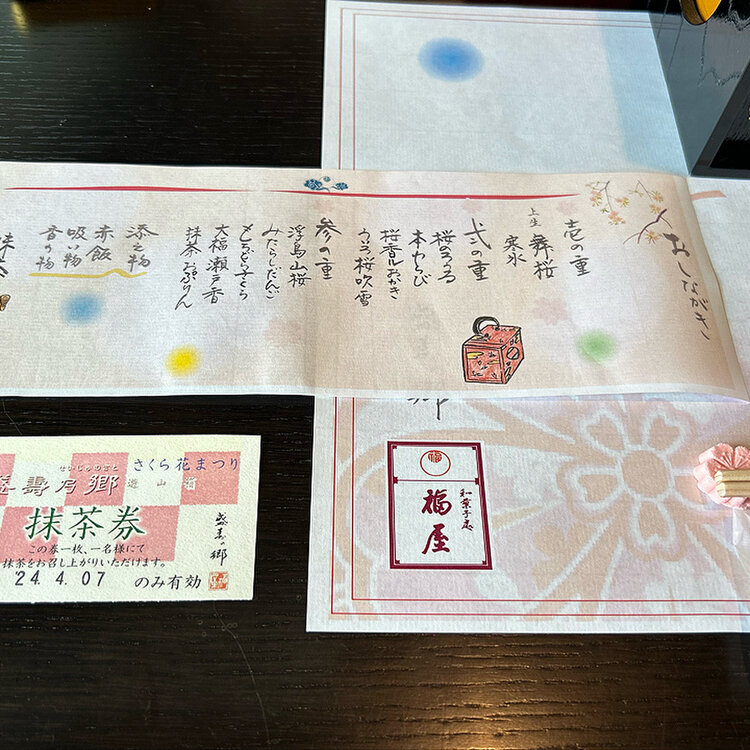 おしながき
壱の重
上生 舞桜
寒氷
弍の重
桜のうる
本わらび
桜香ルおかき
うゐろ桜吹雪
参の重
浮島山桜
みたらしだんご
大福瀬戸香
抹茶
添之物
赤飯
吸い物
香の物
せいじゅのさと
壽乃郷
さくら花まつり
遊山箱
抹茶券
この券一枚、一名様にて
抹茶をお召し上がりいただけます。
24.4.07 のみ有効
盛寿の郷
和菓子處
福屋